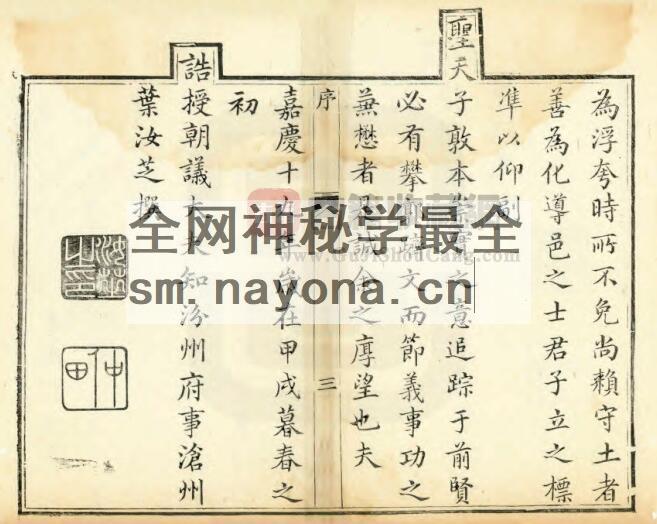 為浮夸時所不免尚賴守土者
善為化導邑之士君子立之標
準以仰副
聖天子敦本之意追踪于前賢
必有攀文而節義事功之
者是誠余之厚望也夫
序 三
嘉慶十九年歲在甲戌暮春之
初
誥授朝議大夫知汾州府事滄州
葉汝芝撰
汝芝之印
仲田
全网神秘学最全
www.GuJiShouCang.com
sm.nayona.cn